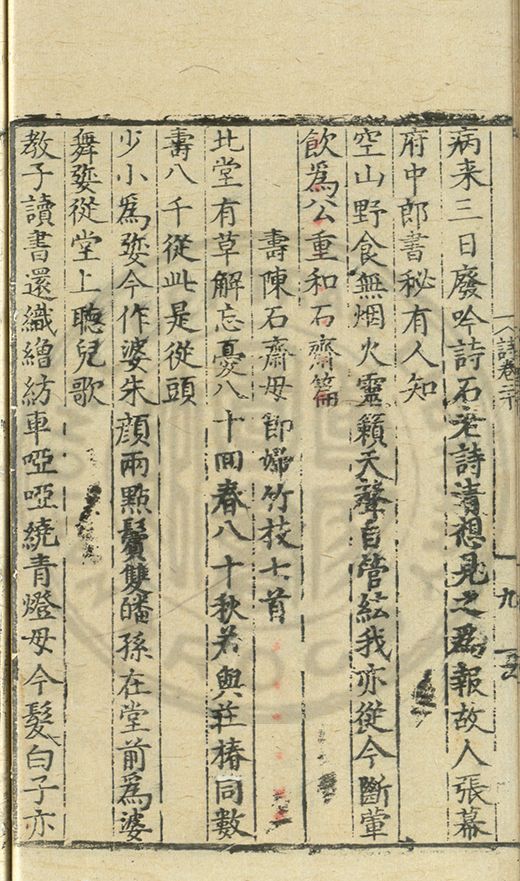 詩卷二十 九
病来三日廢吟詩石老詩清想見之為報故人張幕
府中郎書秘有人知
空山野食無烟火靈籟天聲自管絃我亦從今斷葷
飲爲公重和石齋篇
壽陳石齋母節婦竹枝七首
北堂有草解忘憂八十回春八十秋若與莊椿同數
壽八千從此是從頭
少小爲嫠今作婆朱顔兩點鬢雙皤孫在堂前爲婆
舞嫠從堂上聽兒歌
教子讀書還織繒紡車啞啞繞青燈母今髮白子亦